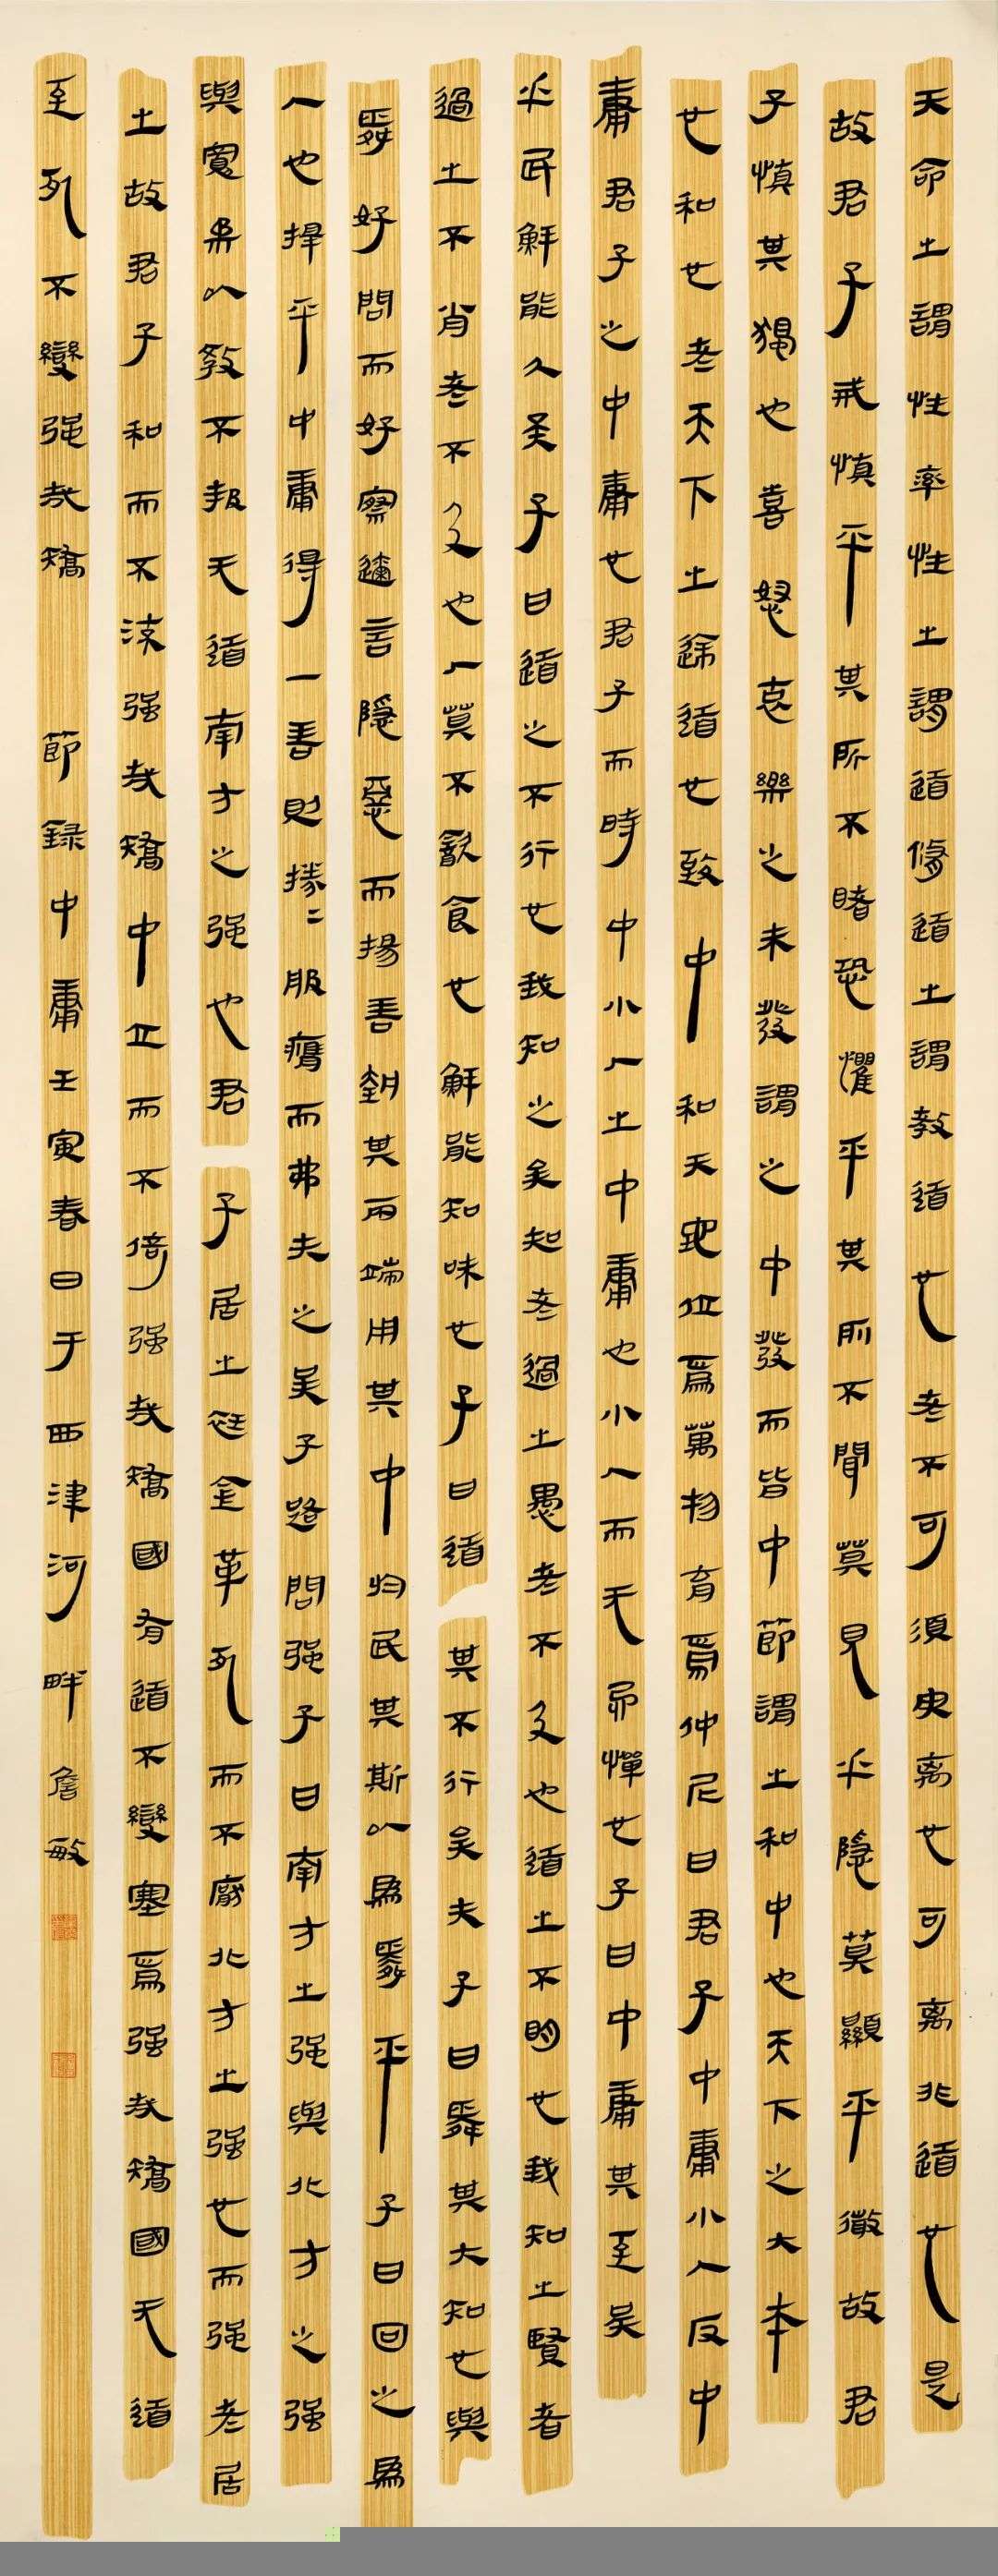 天命之謂性率性之謂道修道之謂教道也者不可須臾离也可离非道也是
故君子戒慎乎其所不睹恐懼乎其所不聞莫見乎隐莫顯乎微故君
子慎其獨也喜怒哀樂之未發謂之中發而皆中節謂之和中也天下之大本
也和也者天下之達道也致中和天地位焉萬物育焉仲尼曰君子中庸小人反中
庸君子之中庸也君子而時中小人之中庸也小人而无忌憚也子曰中庸其至矣
乎民鮮能久矣子曰道之不行也我知之矣知者過之愚者不及也道之不明也我知之賢者
過之不肖者不及也人莫不飲食也鮮能知味也子曰道其不行矣夫子曰舜其大知也與
舜好問而好察邇言隐惡而揚善執其兩端用其中於民其斯以為舜乎子曰回之為
人也擇乎中庸得一善則拳二服膺而弗失之矣子路問强子曰南方之强與北方之强
與寬柔以教不報无道南方之强也君子居之衽金革死而不厭北方之强也而强者居
之故君子和而不流强哉矯中立而不倚强哉矯國有道不變塞焉强哉矯國无道
至死不變强哉矯 節録中庸壬寅春日于西津河畔 詹敏